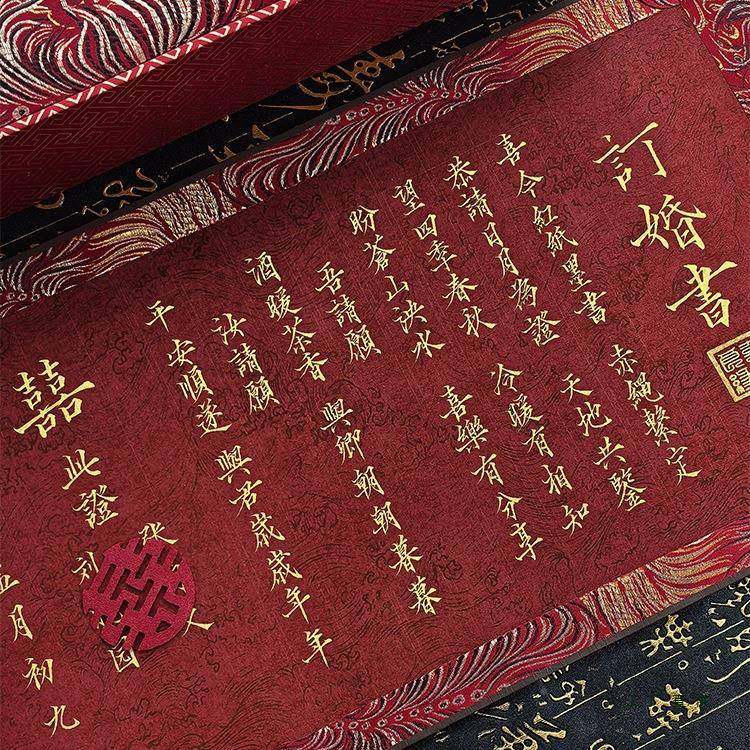 訂婚書
喜今紅紙墨書 赤繩繫定
恭請日月為證 天地共鑒
望四季春秋 冷暖有相知
盼蒼山泱水 喜樂有分享
吾請願 與卿朝朝暮暮
酒暖茶香
汝請願 與君歲歲年年
平安順遂
囍
此證
张 人
刘 园
五月初九